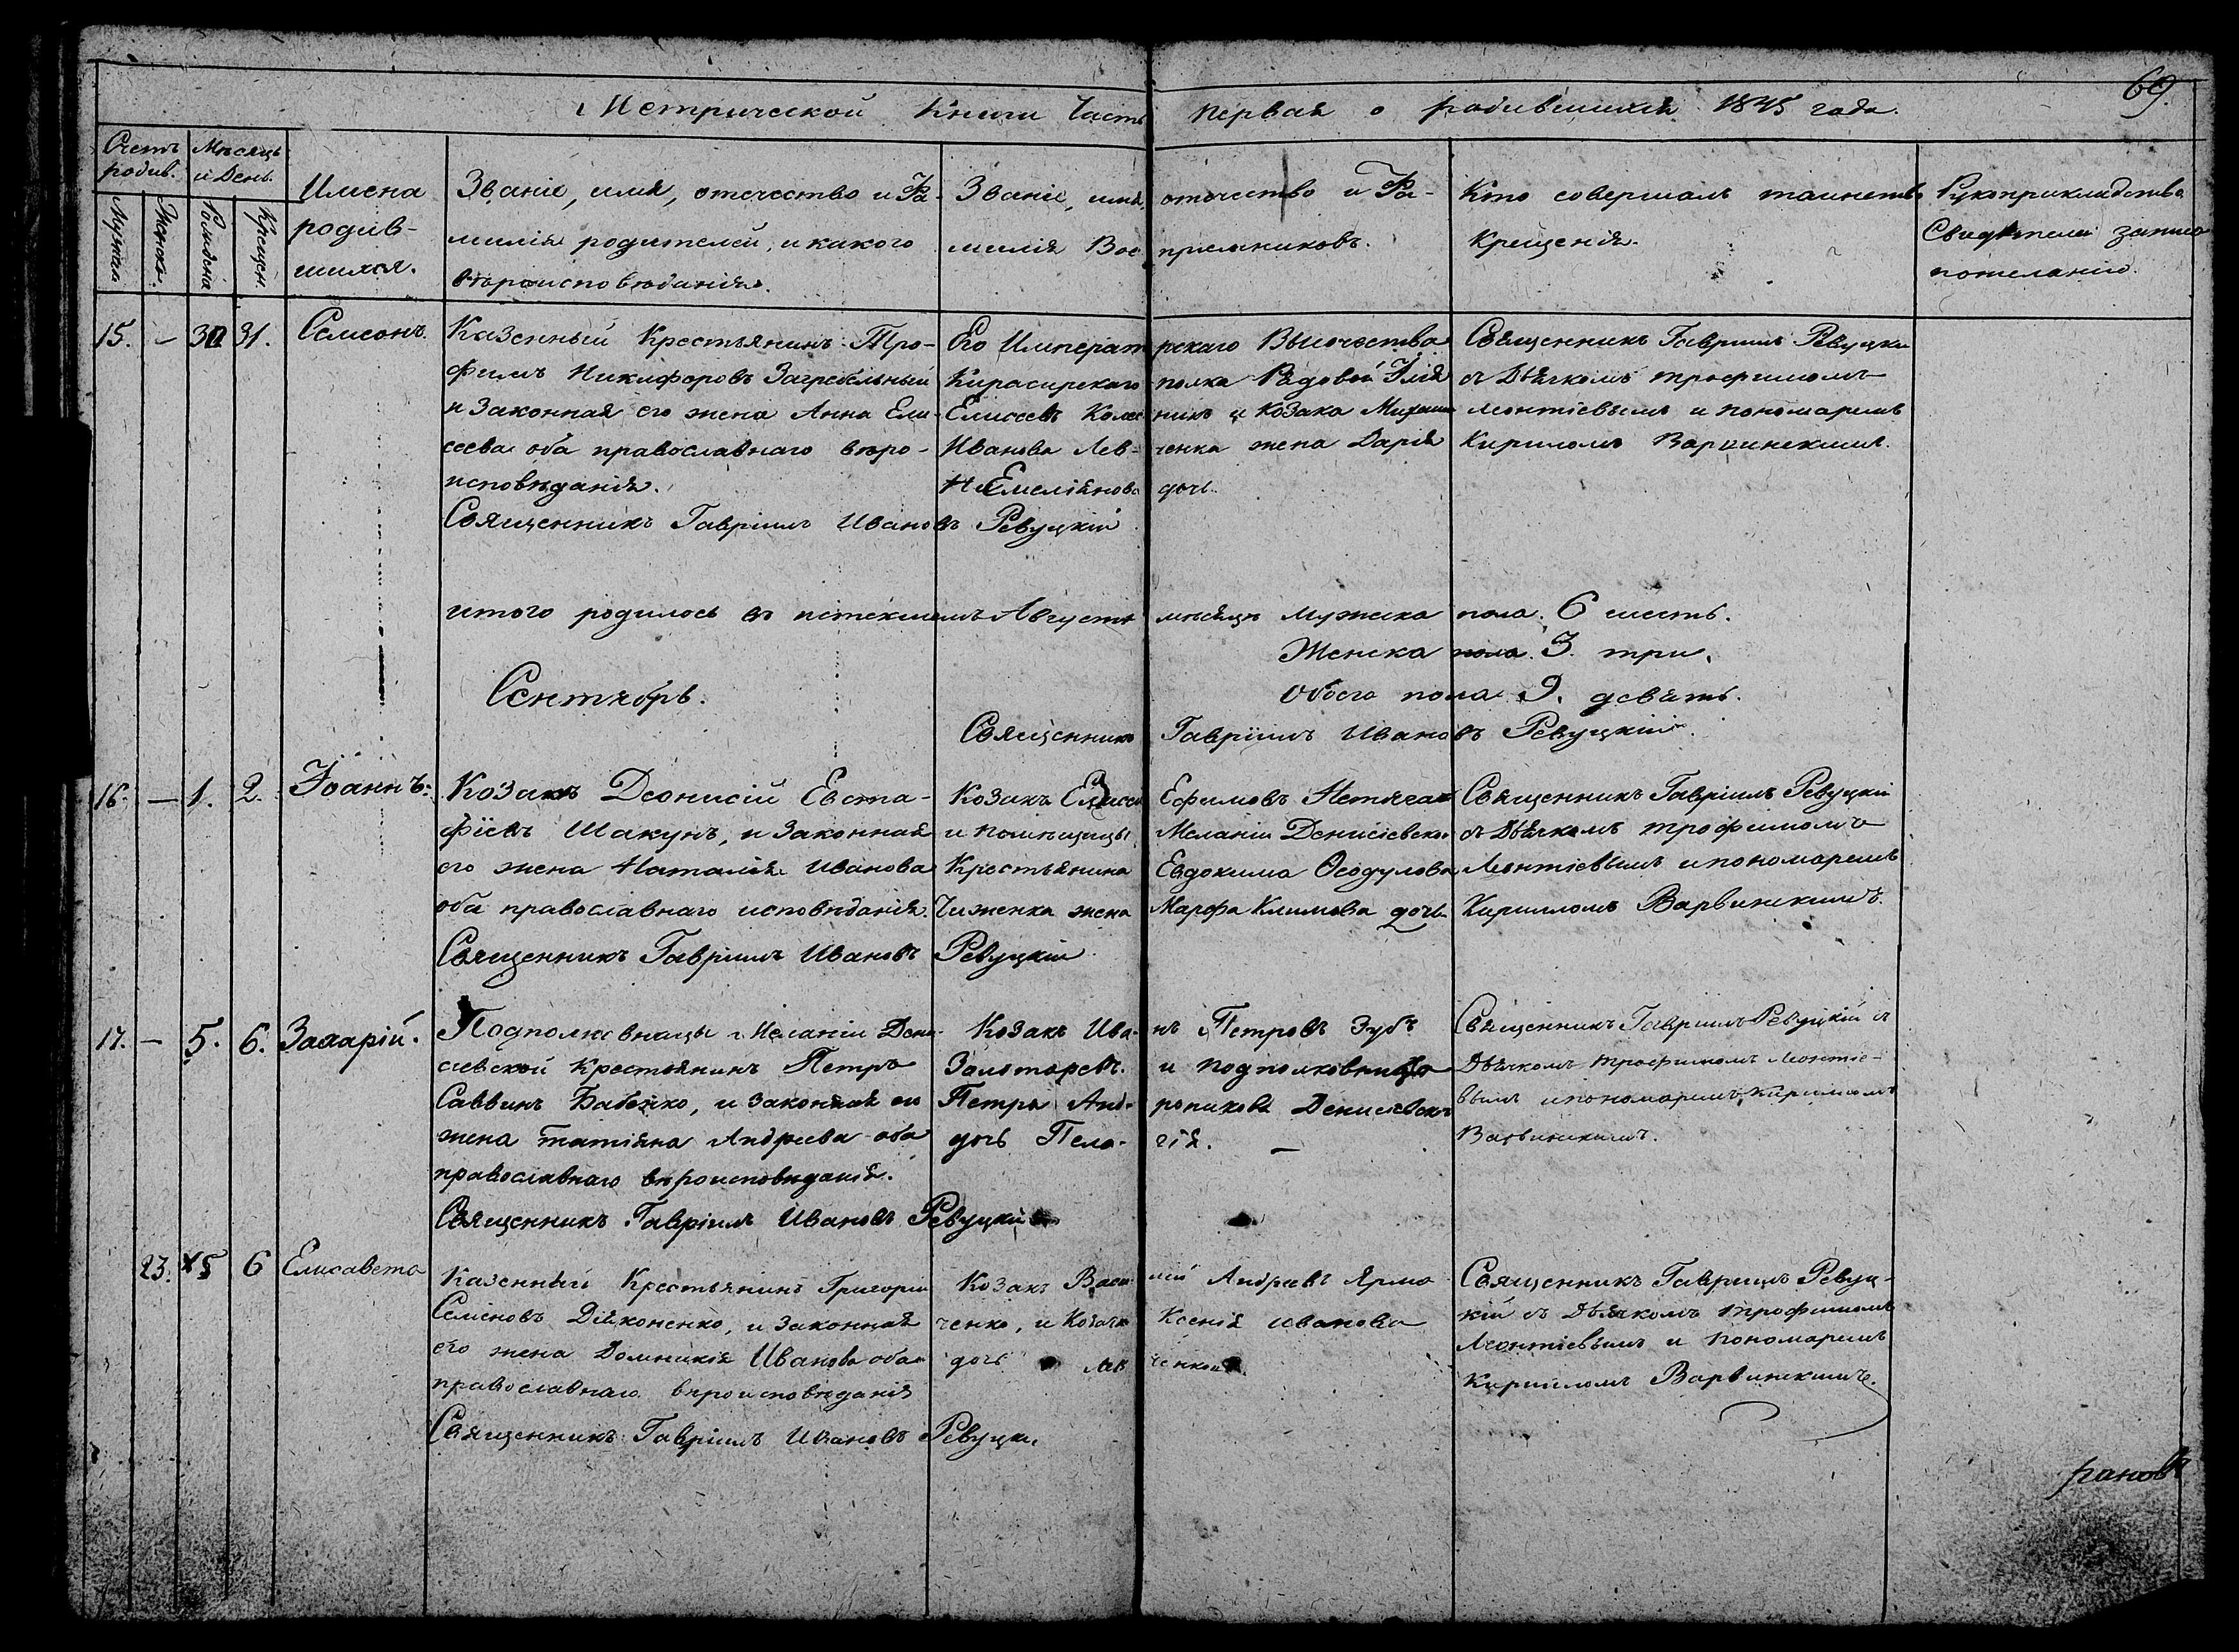 69.
Метрической Книги Часть первая о родившихся 1845 года.
Счетъ родив.
Мѣсяцъ и День.
Мужеска
Женска.
Рождена
Крещен.
Имена
родив-
шихся.
Званіе, имя, отечество и Фа-
милія родителей, и какого
вѣроисповѣданія.
Званіе, имя, отечество и Фа-
милія Вос приемниковъ.
Кто совершалъ таинство
Крещенія.
Рукоприкладство
Свидѣтелей записи
по желанію.
15. — 30 31. Самсонъ.
Казенный Крестьянинъ Тро-
фимъ Никифоровъ Загребельный
и Законная его жена Анна Ели-
сеева оба православнаго вѣро-
исповѣданія.
Священникъ Гавріилъ Ивановъ Ревуцкій
Его Императ рскаго Высочества
Кирасирскаго полка Рядовой Илія
Елисеевъ и Козака Михаила
Иванова Лев- ченка жена Дарія
Емеліянова дочь.
Священникъ Гавріилъ Ревуцкій
съ Дьячкомъ Трофимомъ
Леонтіевымъ и пономаремъ
Кирилломъ Варвинскимъ.
итого родилось въ истекшемъ Августѣ мѣсяцѣ мужеска пола. 6 шесть.
Женска пола. 3. три.
Обоего пола 9. девять.
Сентябрь.
Священникъ Гавріилъ Ивановъ Ревуцкій.
16. — 1. 2. Іоаннъ.
Козакъ Деонисій Евста-
фіевъ Шакунъ, и Законная
его жена Наталія Иванова
оба православнаго исповѣданія.
Священникъ Гавріилъ Ивановъ Ревуцкій
Козакъ Елисей Ефимовъ Нетяга
и помѣщицы Меланіи Денисіевской
Крестьянина Евдокима Феодулова
Чиженка жена Марфа Климова дочь
Священникъ Гавріилъ Ревуцкій
съ Дьячкомъ Трофимомъ
Леонтіевымъ и пономаремъ
Кирилломъ Варвинскимъ.
17. — 5. 6. Захарій.
Подполковницы Меланіи Дени-
сіевской Крестьянинъ Петръ
Саввинъ Бабенко, и Законная его
жена Татіяна Андреева оба
православнаго вѣроисповѣданія.
Священникъ Гавріилъ Ивановъ Ревуцкій
Козакъ Ива- нъ Петровъ Зубъ
Золотаревъ. и подполковника
Петра Анд- роникова Денисіевска
дочь Пела- гія. —
Священникъ Гавріилъ Ревуцкій съ
Дьячкомъ Трофимомъ Леонтіе-
вымъ и пономаремъ Кирилломъ
Варвинскимъ.
23. 5 6 Елисавета
Казенный Крестьянинъ Григорій
Семеновъ Діяконенко, и Законная
его жена Домникія Иванова оба
православнаго вѣроисповѣданія
Священникъ Гавріилъ Ивановъ Ревуцкі.
Козакъ Васи- лій Андреевъ Ярмо
ченко, и Козачка Ксенія Иванова
дочь Лев ченкова
Священникъ Гавріилъ Ревуц-
кій съ Дьячкомъ Трофимомъ
Леонтіевымъ и Пономаремъ
Кирилломъ Варвинскимъ.